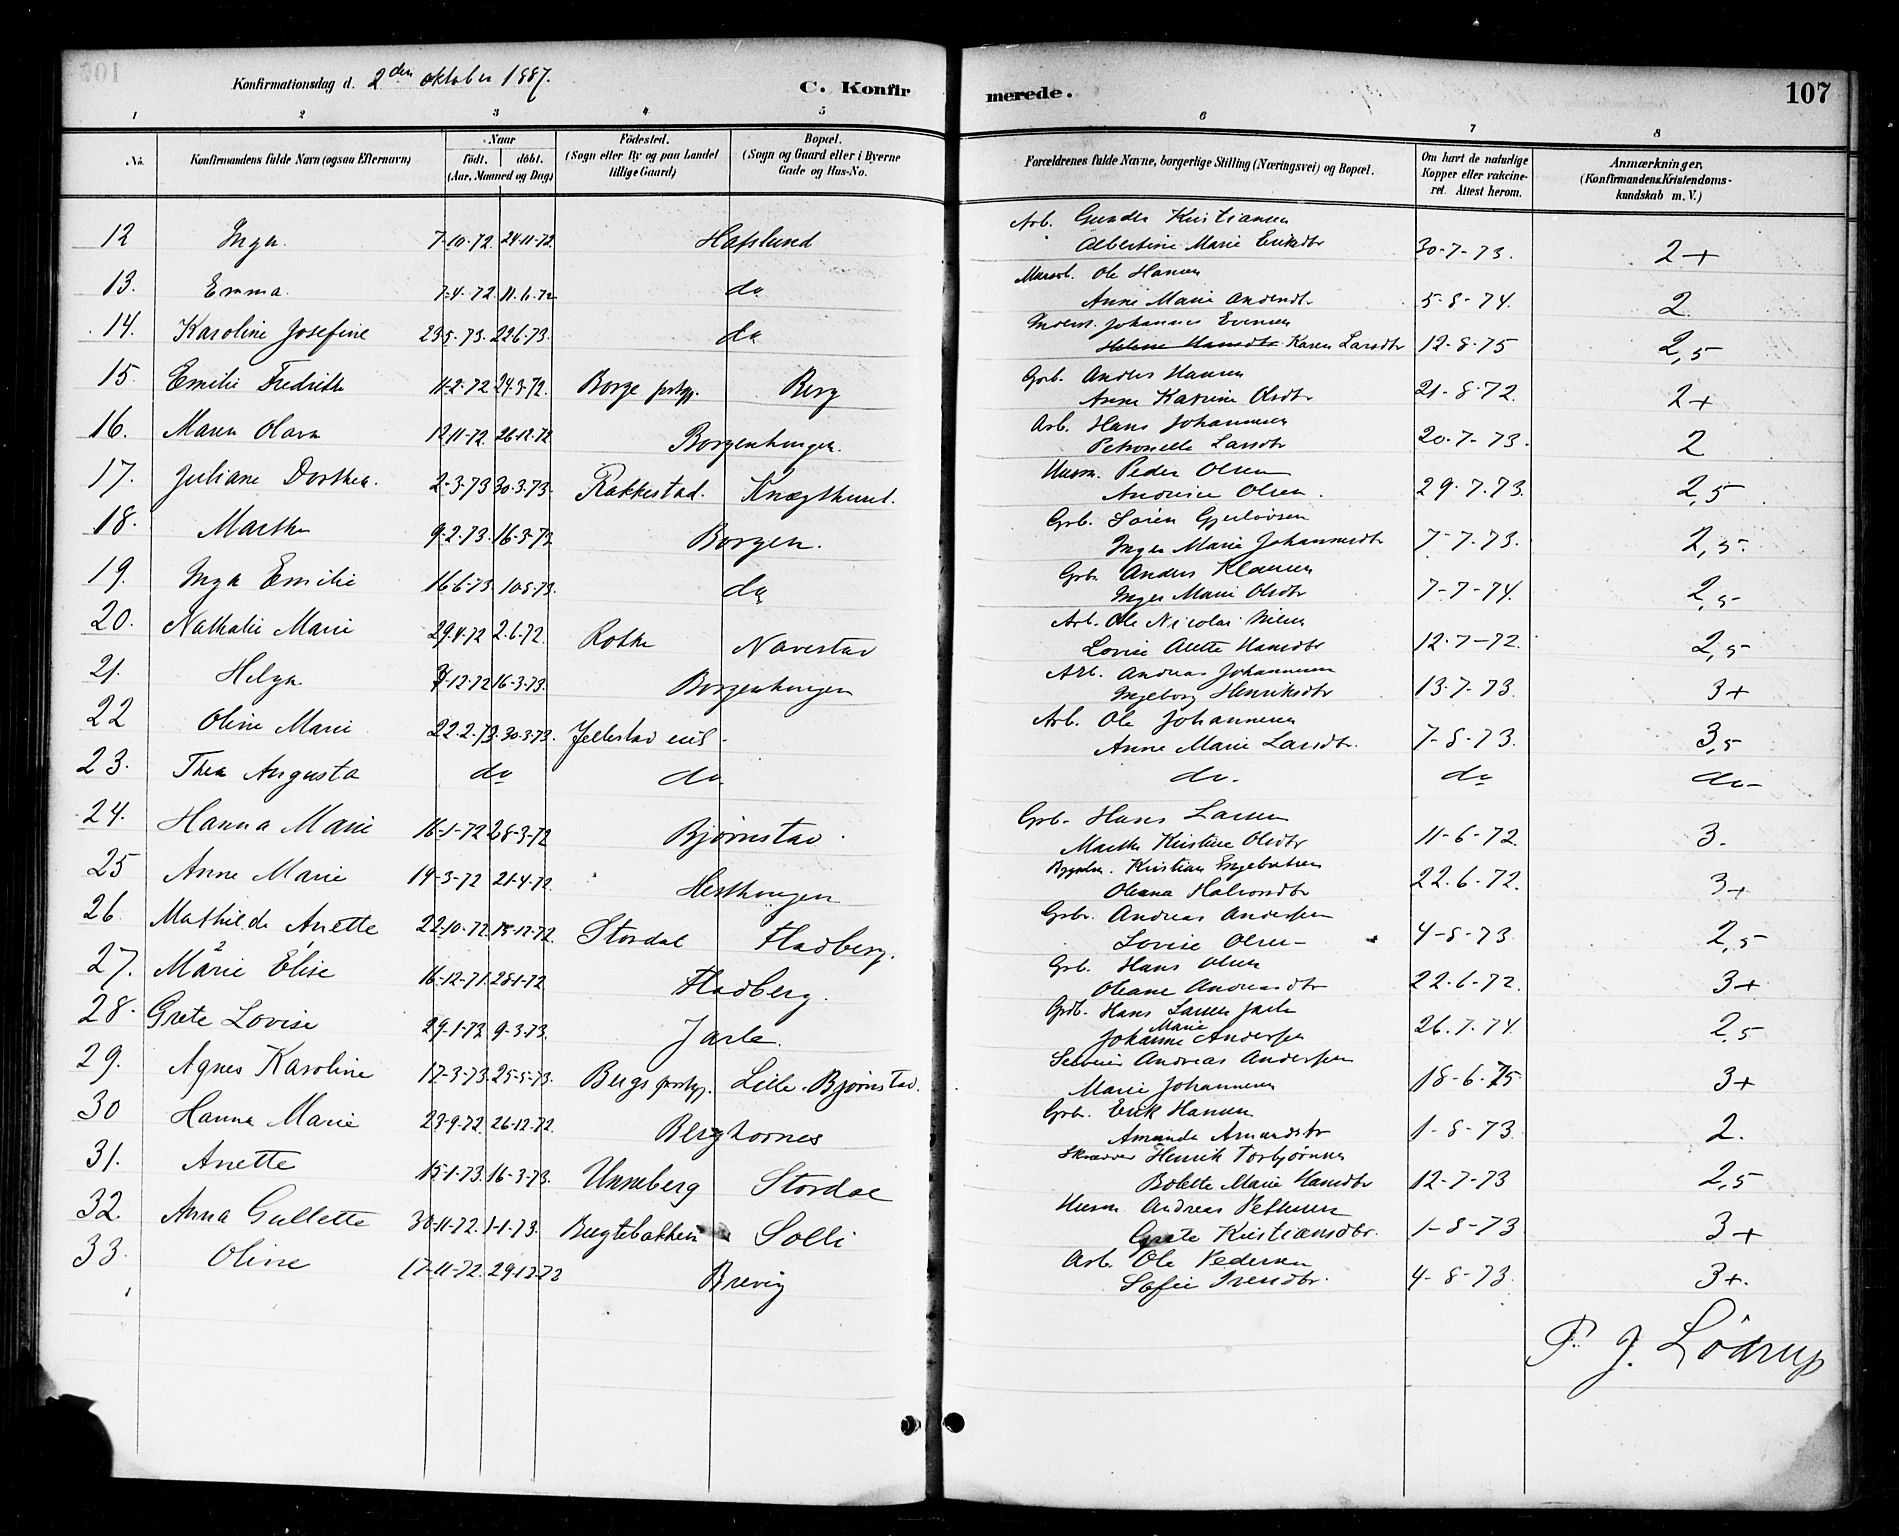 Konfirmationsdag d. 2den oktober 1887. C. Konfirmerede. 107
1 2 3 4 5 6 7 8
No. Konfirmandens fulde Navn (ogsaa Efternavn) Naar födt. döbt. (Aar, Maaned og Dag) Födested. (Sogn eller By og paa Landet tillige Gaard) Bopæl. (Sogn og Gaard eller i Byerne Gade og Hus-No. Forældrenes fulde Navne, borgerlige Stilling (Næringsvei) og Bopæl. Om havt de naturlige Kopper eller vakcineret. Attest herom. Anmærkninger. (Konfirmandens Kristendomskundskab m. V.)
12 Inga 7-10-72 24-11-72 Hafslund Arb. Gunder Kristiansen
Albertine Marie Eriksdtr 30-7-73. 2+
13. Emma. 7-4-72. 11.6.72 do Ole Hansen
Anne Marie 5-8-74. 2
14. Karoline Josefine 23-5-73. 22.6.73. do Johannes Evensen
Helene Hansdtr Karen Larsdtr 12-8-75 2,5
15. Emilie Fredrikke 11-2-72 24.3.72. Borge prstgj. Berg Grb. Anders Hansen
Anne Katrine Olsdtr 21-8-72. 2+
16. Maren Olava 12-11-72 26-12-72 Borgenhaugen. Arb. Hans Johannesen
Petronelle Larsdtr 20-7-73. 2
17. Juliane Dorthea. 2-3-73 30.3.73. Rakkestad. Husm. Peder Olsen
Andrine Olsen. 29.7.73. 2,5
18. Marthe 9-2.73. 16-3-73 Borgen. Grb. Sören
Inger Marie Johannesdtr 7-7-73. 2,5.
19. Inga Emilie 16.6.73. 10.8.73. do Grb. Anders Klausen
Inger Marie Olsdtr 7-7-74. 2,5
20. Nathalie Marie 29.4.72 2.6.72. Rokke Navestad Arb. Ole Nicolai Nilsen
Lovise Alette Hansdtr 12-7-72. 2,5
21. Helga -12-72 16-3-73. Borgenhaugen Arb. Andreas Johannesen
Ingeborg Henriksdtr 13-7.73. 3+
22 Oline Marie 22.2.73. 30.3.73. Jellestad Arb. Ole Johannesen
Anne Marie Larsdtr. 7-8-73. 3,5
23. Thea Augusta do do do. do do
24. Hanna Marie 16-1-72 28-3-72 Bjørnstad. Grb. Hans Larsen
Marthe Kristine Olsdtr 11-6-72. 3.
25 Anne Marie 19-3-72 21-4-72. Hesthaugen Kristian Engebretsen
Oleana Halvorsdtr 22.6.72. 3+
26 Mathilde Anette 22-10-72. 15-12-72. Stordal Hadberg. Grbr. Andreas Anderssen
Lovise Olsen 4-8-73 2,5
27. Marie Elise 16-12-71. 28-1-72 Hadberg. Grb. Hans Olsen
Oleane Andreasdtr 22.6-72. 3+
28. Grete Lovise 29.1-73. 9-3-73. Jarle. Grdb. Hans Larsen Jarle
Johanne Marie Anderssen 26.7.74. 2,5
29. Agnes Karoline 17-3-73. 25-5-73. Bergs prstgj. Lille-Bjørnstad. Andreas Anderssen
Marie Johannesen 18-6-75 3+
30 Hanna Marie 23-9.72. 26-12.72. Berghornes Grb. Erik Hansen
Amanda Amundsdtr 1-8-73. 2.
31. Anette 15-1-73. 16-3-73. Unneberg Stordal Skræder Henrik Torbjørnsen
Bolette Marie Hansdtr 12-7-73 2,5
32. Anna Gullette 30-11-72. 1-1-73. Bugtebakken Solli Husm. Andreas Pettersen
Grete Kristiansdtr. 1-8-73 3+
33. Oline 17-11-72. 29-12-72 Brevig Arb. Ole Pedersen
Sofie Svendtr. 4-8-73. 3+.
P. J. Lödrup